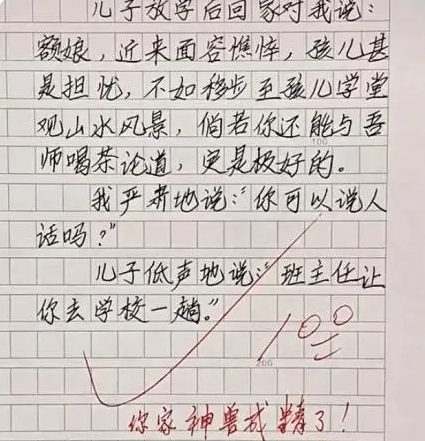 儿子放学后回家对我说：
额娘，近来面容憔悴，孩儿甚
是担忧，不如移步至孩儿学堂
观山水风景，倘若你还能与吾
师喝茶论道，定是极好的。
我严肃地说：“你可以说人
话吗？”
儿子低声地说：“班主任让
你去学校一趟。”
100
100
200
你家神兽成精了！